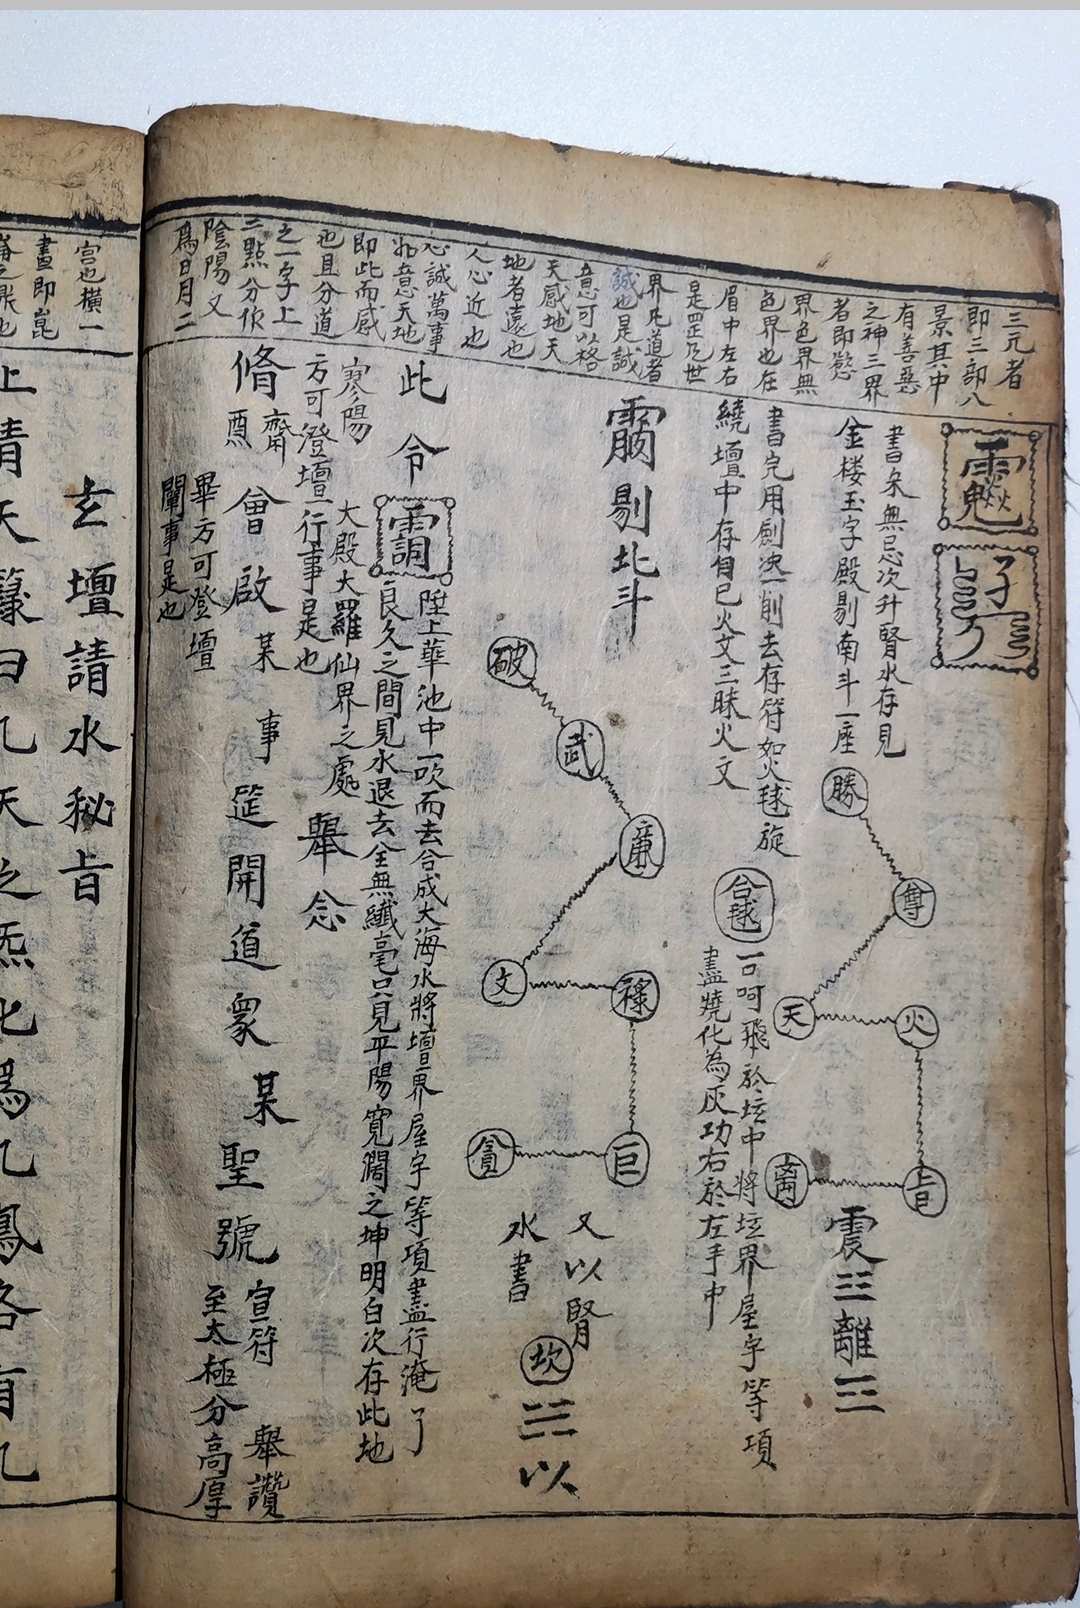 三元者
即三部八
景其中
有善惡
之神三界
者即慾
界色界無
色界也在
眉中左右
是罡乃世
界凡道者
誠也是誠
意可以格
天感地天
地者遠也
人心近也
心誠萬事
如意天地
即此而感
也且分道
之一字上
二點分作
陰陽又
為日月二
書朱無忌次升腎水存見
金楼玉字殿剔南斗一座
勝
尊
天
火
旨
震三離三
書完用劍决一削去存符如火毬旋
繞壇中存自己火文三昧火文
合毬
一口呵飛於坛中將坛界屋宇等項
盡燒化為灰功右於左手中
剔北斗
破
武
廉
文
祿
巨
貪
又以腎
水書
坎
三以
此令
陞上華池中一吹而去合成大海水將壇界屋宇等項盡行淹了
良久之間見水退去全無纖毫只見平陽寬濶之坤明白次存此地
大殿大羅仙界之處
舉念
寒陽
方可澄壇行事是也
脩齋
會啟某事筵開道眾某聖號
宣符
至太極分高厚
舉讚
畢方可登壇
闡事是也
宮也橫一
畫即崑
玄壇請水秘旨